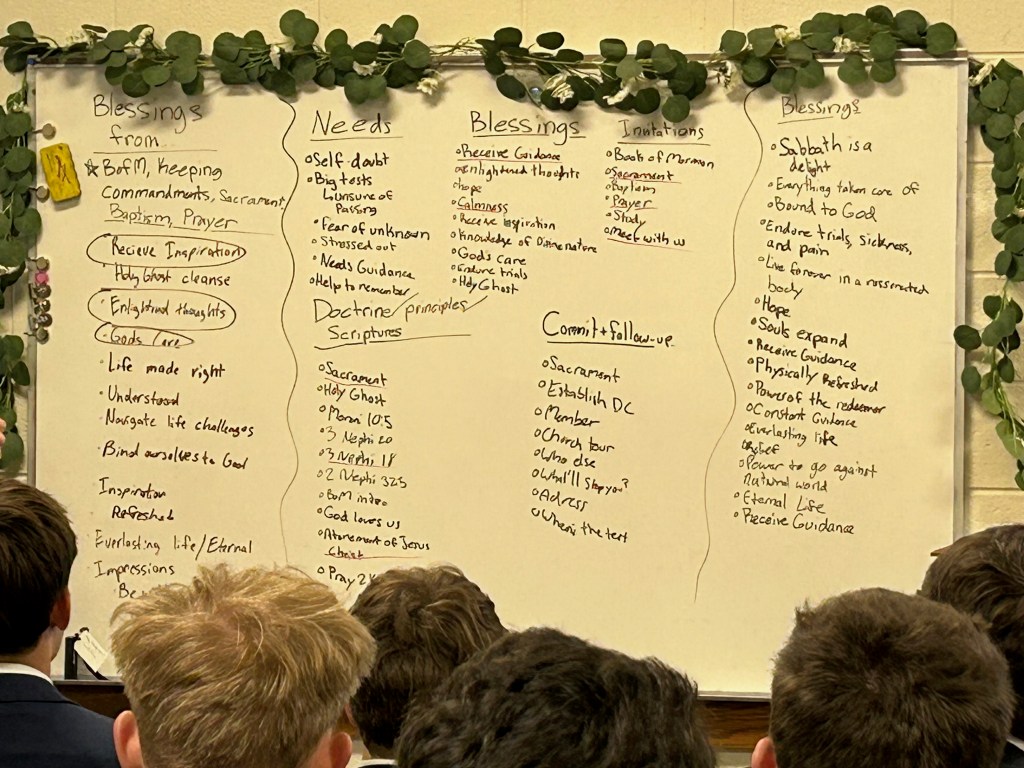 Blessings
from
☆ BofM, Keeping
Commandments, Sacrament
Baptism, Prayer
Recieve Inspiration
Holy Ghost cleanse
Enlightined thoughts
Gods Care
Life made right
Understood
Navigate life challenges
Bind ourselves to God
Inspiration
Refreshed
Everlasting life/Eternal
Impressions
Needs
Self doubt
Big tests
Unsure of
Passing
Fear of unknown
Stressed out
Needs Guidance
Help to remember
Doctrine/principles/
Scriptures
Sacrament
Holy Ghost
Moroni 10:5
3 Nephi 20
3 Nephi 18
2 Nephi 32:5
BoM intro
God loves us
Atonement of Jesus
Christ
Pray
Blessings
Receive Guidance
Enlightened thoughts
hope
Calmness
Receive inspiration
Knowledge of Divine nature
God's care
Endure trials
Holy Ghost
Invitations
Book of Mormon
Sacrament
Baptism
Prayer
Study
Meet with us
Commit + follow-up
Sacrament
Establish DC
Member
Church tour
Who else
What'll stop you?
Adress
When's the text
Blessings
Sabbath is a
delight
Everything taken care of
Bound to God
Endure trials, sickness,
and pain
Live forever in a
body
Hope
Souls expand
Receive Guidance
Physically Refreshed
Power of the redeemer
Constant Guidance
Everlasting life
Relief
Power to go against
natural world
Eternal Life
Receive Guidance